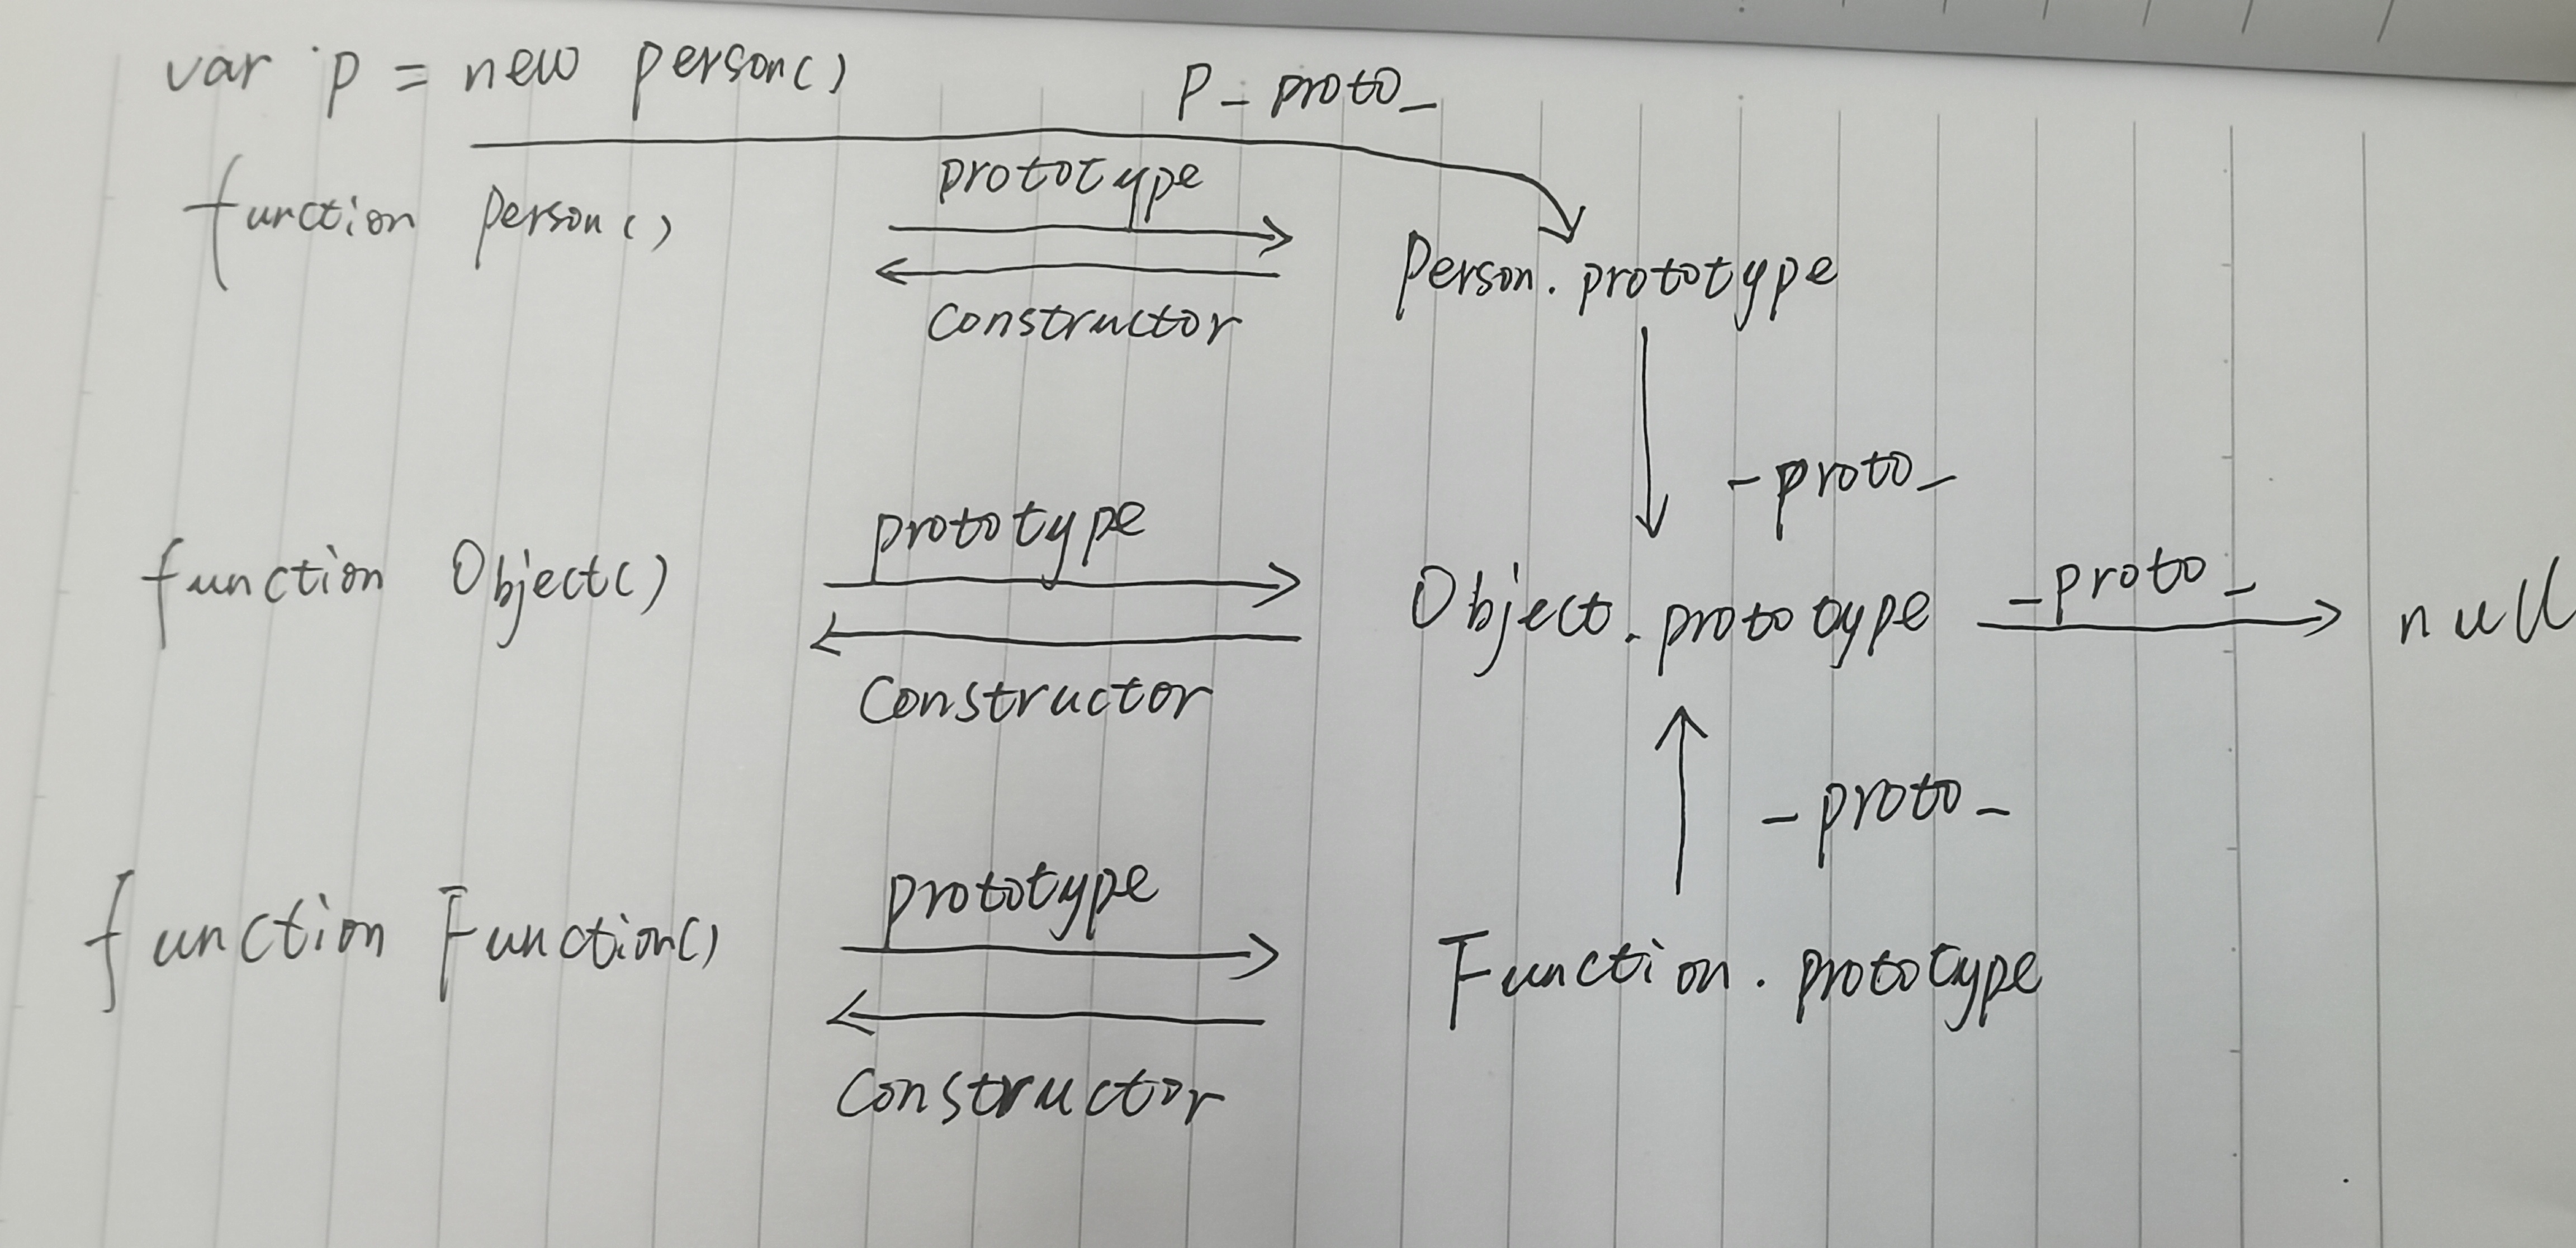 var p = new person()
p_proto_
prototype
function Person()
Person.prototype
constructor
_proto_
prototype
function Object()
Object.prototype
_proto_
null
constructor
_proto_
prototype
function Function()
Function.prototype
constructor